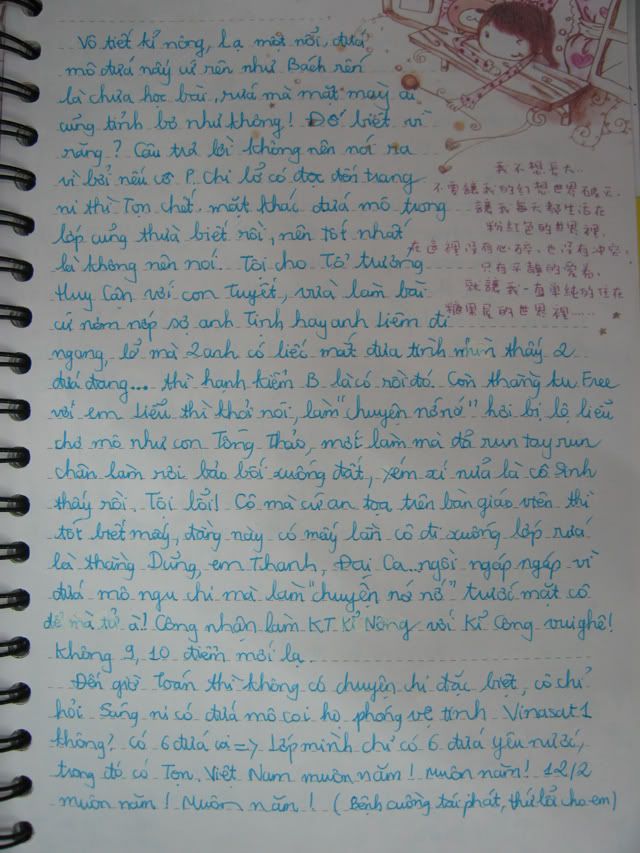 Vô tiết kỉ nông, lạ một nổi, đứa
mô đứa nấy cứ rên như Bách rên
là chưa học bài, rứa mà mặt mày ai
cũng tỉnh bơ như không! Đố biết vì
răng? Câu trả lời không nên nói ra
vì bởi nếu cô P. Chi lỡ có đọc đến trang
ni thì Tọn chết. mặt khác đứa mô trong
lớp cũng thừa biết rồi, nên tốt nhất
là không nên nói. Tội cho Tổ trưởng
Huy Cận với con Tuyết, vừa làm bài
cứ nơm nớp sợ anh Tinh hay anh Liêm đi
ngang, lỡ mà 2 anh có liếc mắt đưa tình nhìn thấy 2
đứa đang... thì hạnh kiểm B là có rồi đó. Còn thằng ku Free
với em Liểu thì khỏi nói, làm "chuyện nớ nớ" hơi bị lộ liểu
chớ mô như con Tống Thảo, mới làm mà đã run tay run
chân làm rơi bảo bối xuống đất, xém xí nữa là cô Sinh
thấy rồi. Tội lổi! Cô mà cứ an tọa trên bàn giáo viên thì
tốt biết mấy, đằng này có mấy lần cô đi xuống lớp rứa
là thằng Dũng, em Thanh, Đại Ca..ngồi ngáp ngáp vì
đứa mô ngu chi mà làm "chuyện nớ nớ" trước mặt cô
để mà tử à! Công nhận làm KT Kỉ Nông với Kỉ Công vui ghê!
Không 9, 10 điểm mới lạ.
Đến giờ Toán thì không có chuyện chi đặc biệt, cô chỉ
hỏi Sáng ni có đứa mô coi họ phóng vệ tinh Vinasat 1
không? Có 6 đứa coi => Lớp mình chỉ có 6 đứa yêu nước,
trong đó có Tọn. Việt Nam muôn năm! Muôn năm! 12/2
muôn năm! Muôn năm! (Bệnh cuồng tái phát, thứ lổi cho em)
我不想長大..
不要讓我的幻想世界破滅.
讓我每天都生活在
粉紅色的世界裡,
在這裡沒有心碎、也沒有冲突,
只有平靜的愛着,
就讓我一直單純的住在
糖果屋的世界裡.....